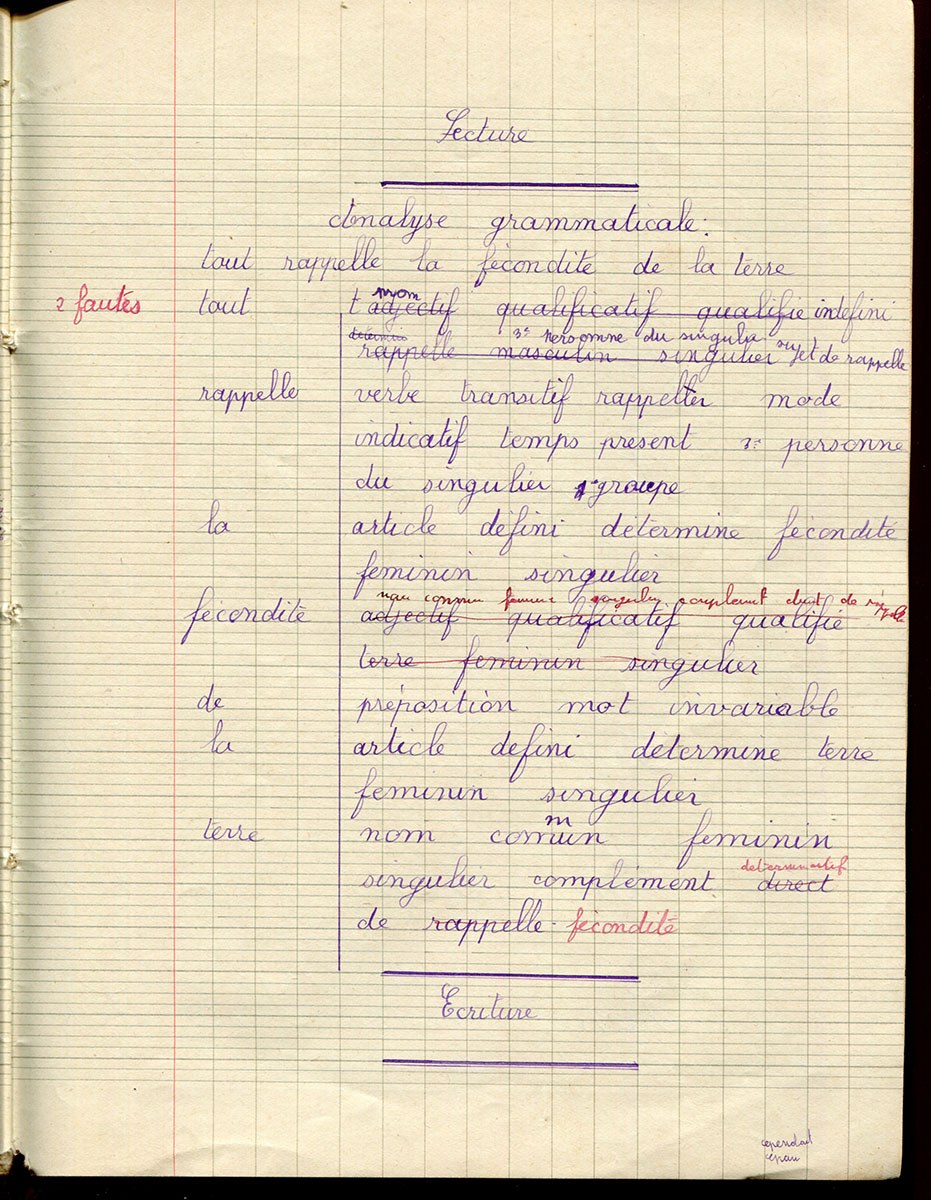 Lecture
Analyse grammaticale:
tout rappelle la fécondité de la terre
2 fautes
nom
tout t'adjectif qualificatif qualifie indéfini
3e personne du singulier sujet de rappelle
rappelle masculin singulier
rappelle verbe transitif rappelter mode
indicatif temps présent 3e personne
du singulier 1er groupe
la article défini détermine fécondité
feminin singulier
nom commun féminin singulier complement direct de rappelle
fécondité adjectif qualificatif qualifie
terre feminin singulier
de préposition mot invariable
la article défini détermine terre
feminin singulier
m
terre nom comun feminin
determinatif
singulier complément direct
de rappelle. fécondité
Ecriture
cependant
cepan